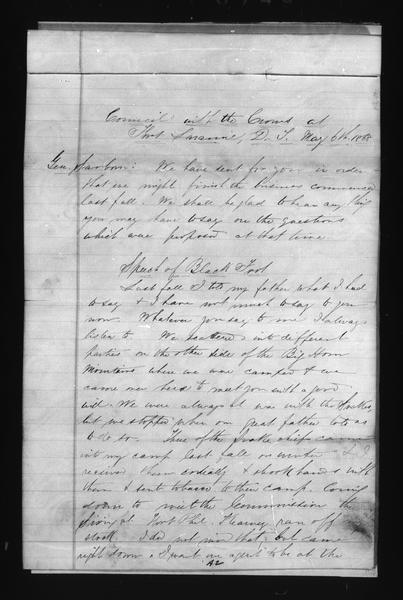 Council with the Crows at
Fort Laramie, D. T. May 6th 1868
Gen. Sanborn: We have sent for you in order
that we might finish the business commenced
last fall. We shall be glad to hear any thing
you may have to say on the questions
which were proposed at that time.
Speech of Black Foot
Last fall I told my father what I had
to say & I have not much to say to you
now. Whatever you say to me I always
listen to. We scattered into different
parties on the other side of the Big Horn
Mountains where we were camped & we
came over here to meet you with a good
will. We were always at war with the Snakes,
but we stopped when our great father told us
to do so. Three of the Snake chiefs came
into my camp last fall or winter & I
received them cordially & shook hands with
them & sent tobacco to their camp. Coming
down to meet the Commission the
Sioux at Fort Phil. Kearney ran off
stock. I did not mind that but came
right down. I want our agent to be at the
42